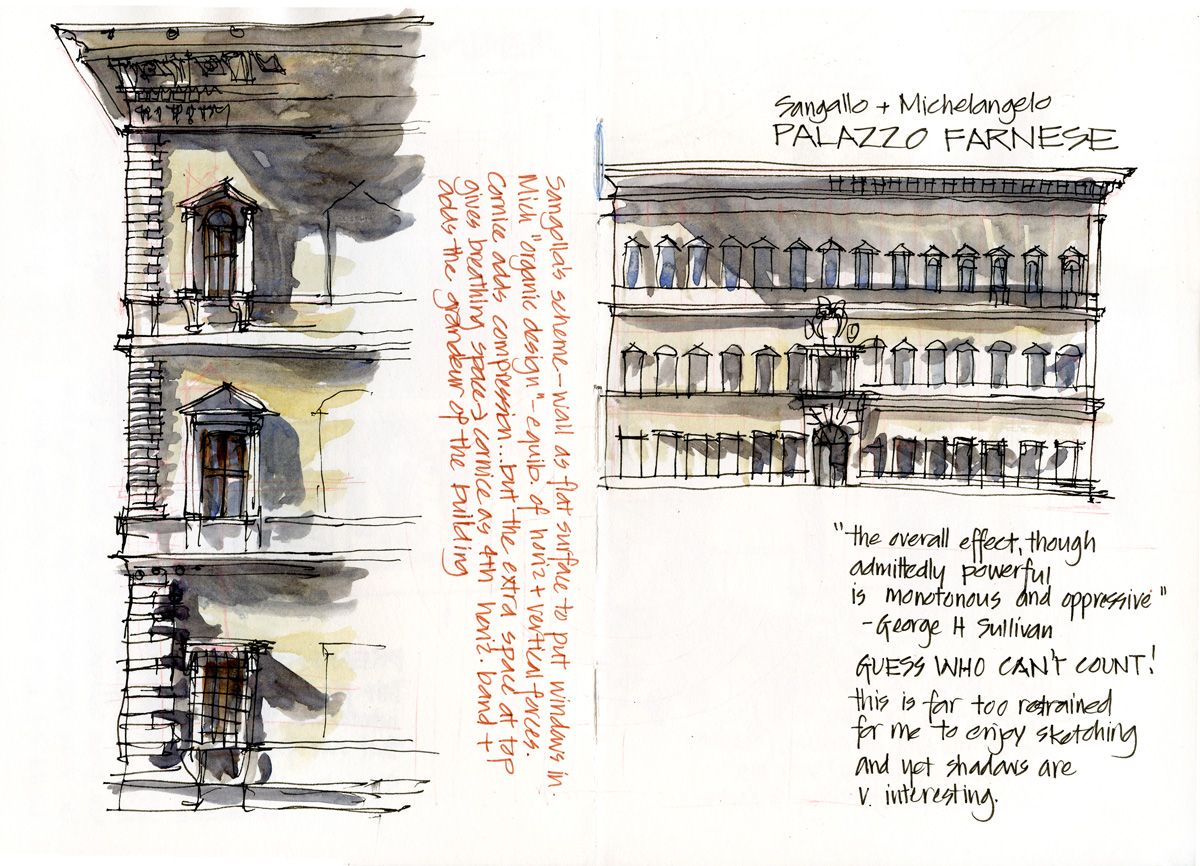 Sangallo's scheme-wall as flat surface to put windows in.
Mich "organic design"-equilib. of horiz + vertical forces.
Cornice adds compression...but the extra space at top
gives breathing space → cornice as 4th horiz. band +
adds the grandeur of the building
Sangallo + Michelangelo
PALAZZO FARNESE
"the overall effect, though
admittedly powerful
is monotonous and oppressive"
-George H Sullivan
GUESS WHO CAN'T COUNT!
this is far too restrained
for me to enjoy sketching
and yet shadows are
v. interesting.